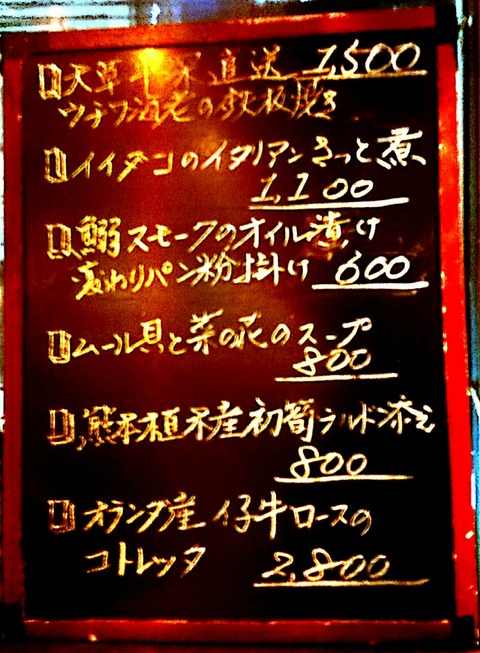 天草 直送 1,500
ウチワ海老の鉄板焼き
イイダコのイタリアンさっと煮
1,100
鰯スモークのオイル漬け
変わりパン粉掛け 600
ムール貝と菜の花のスープ
800
熊本植木産初筍ラルド添え
800
オランダ産 仔牛ロースの
コトレッタ 2,800